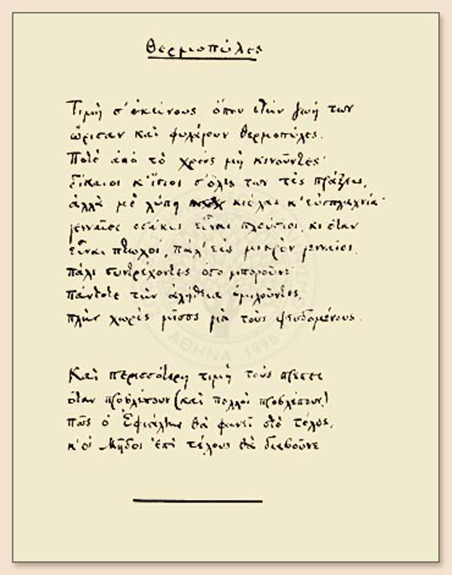 Θερμοπύλες
Τιμή σ' εκείνους όπου στην ζωή των
ώρισαν και φυλάγουν Θερμοπύλες.
Ποτέ από το χρέος μη κινούντες·
δίκαιοι κ' ίσιοι σ' όλες των τες πράξεις,
αλλά με λύπη κιόλας κ' ευσπλαχνία·
γενναίοι οσάκις είναι πλούσιοι, κι όταν
είναι πτωχοί, πάλ' εις μικρόν γενναίοι,
πάλι συντρέχοντες όσο μπορούνε·
πάντοτε την αλήθεια ομιλούντες,
πλην χωρίς μίσος για τους ψευδομένους.
Και περισσότερη τιμή τους πρέπει
όταν προβλέπουν (και πολλοί προβλέπουν)
πως ο Εφιάλτης θα φανεί στο τέλος,
κ' οι Μήδοι επί τέλους θα διαβούνε
ΑΘΗΝΑ 1995